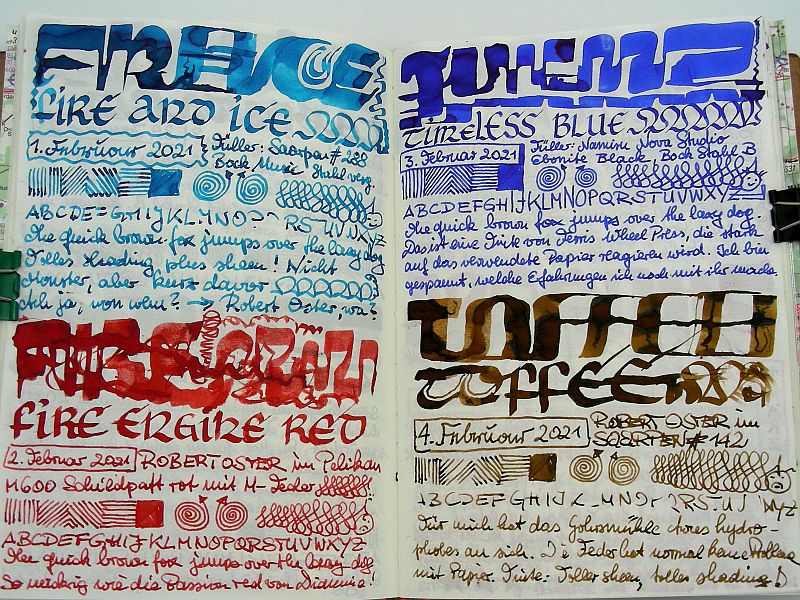 FIRE AND ICE
1. Februar 2021 Füller: # 228
Bock Music Stahl verg.
ABCDE=GHIJKLMNO RSTUVWXYZ
The quick brown fox jumps over the lazy dog
Tolles shading plus sheen! Nicht
Monster, aber kurz davor
Ach ja, von wem? → Robert Oster, wa?
FIRE ENGINE RED
2. Februar 2021 ROBERT OSTER im Pelikan
M600 Schildpatt rot mit M-Feder
ABCDEFGHIJKLMNOPQRSTUVWXYZ
The quick brown fox jumps over the lazy dog
So wie die Passion red von Diamine!
TIMELESS BLUE
3. Februar 2021 Füller: Namisu Nova Studio
Ebonite Black, Bock Stahl B
ABCDEFGHIJKLMNOPQRSTUVWXYZ
The quick brown fox jumps over the lazy dog.
Das ist eine Tinte von Ferris Wheel Press, die stark
auf das verwendete Papier reagieren wird. Ich bin
gespannt, welche Erfahrungen ich noch mit ihr mache.
TOFFEE
TOFFEE
4. Februar 2021 ROBERT OSTER im
# 142
ABCDEFGHIJK_MNO RSTU WYZ
Für mich hat das hydro-
phobes an sich. Die Feder hat normal keine Probleme
mit Papier. Tinte: Toller sheen, toller shading!